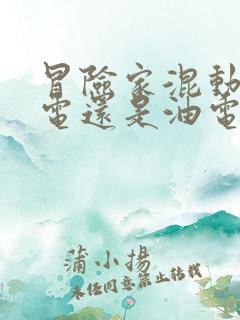 冒險家混動
電還是油電
蒲小揚
未任同意禁止转载